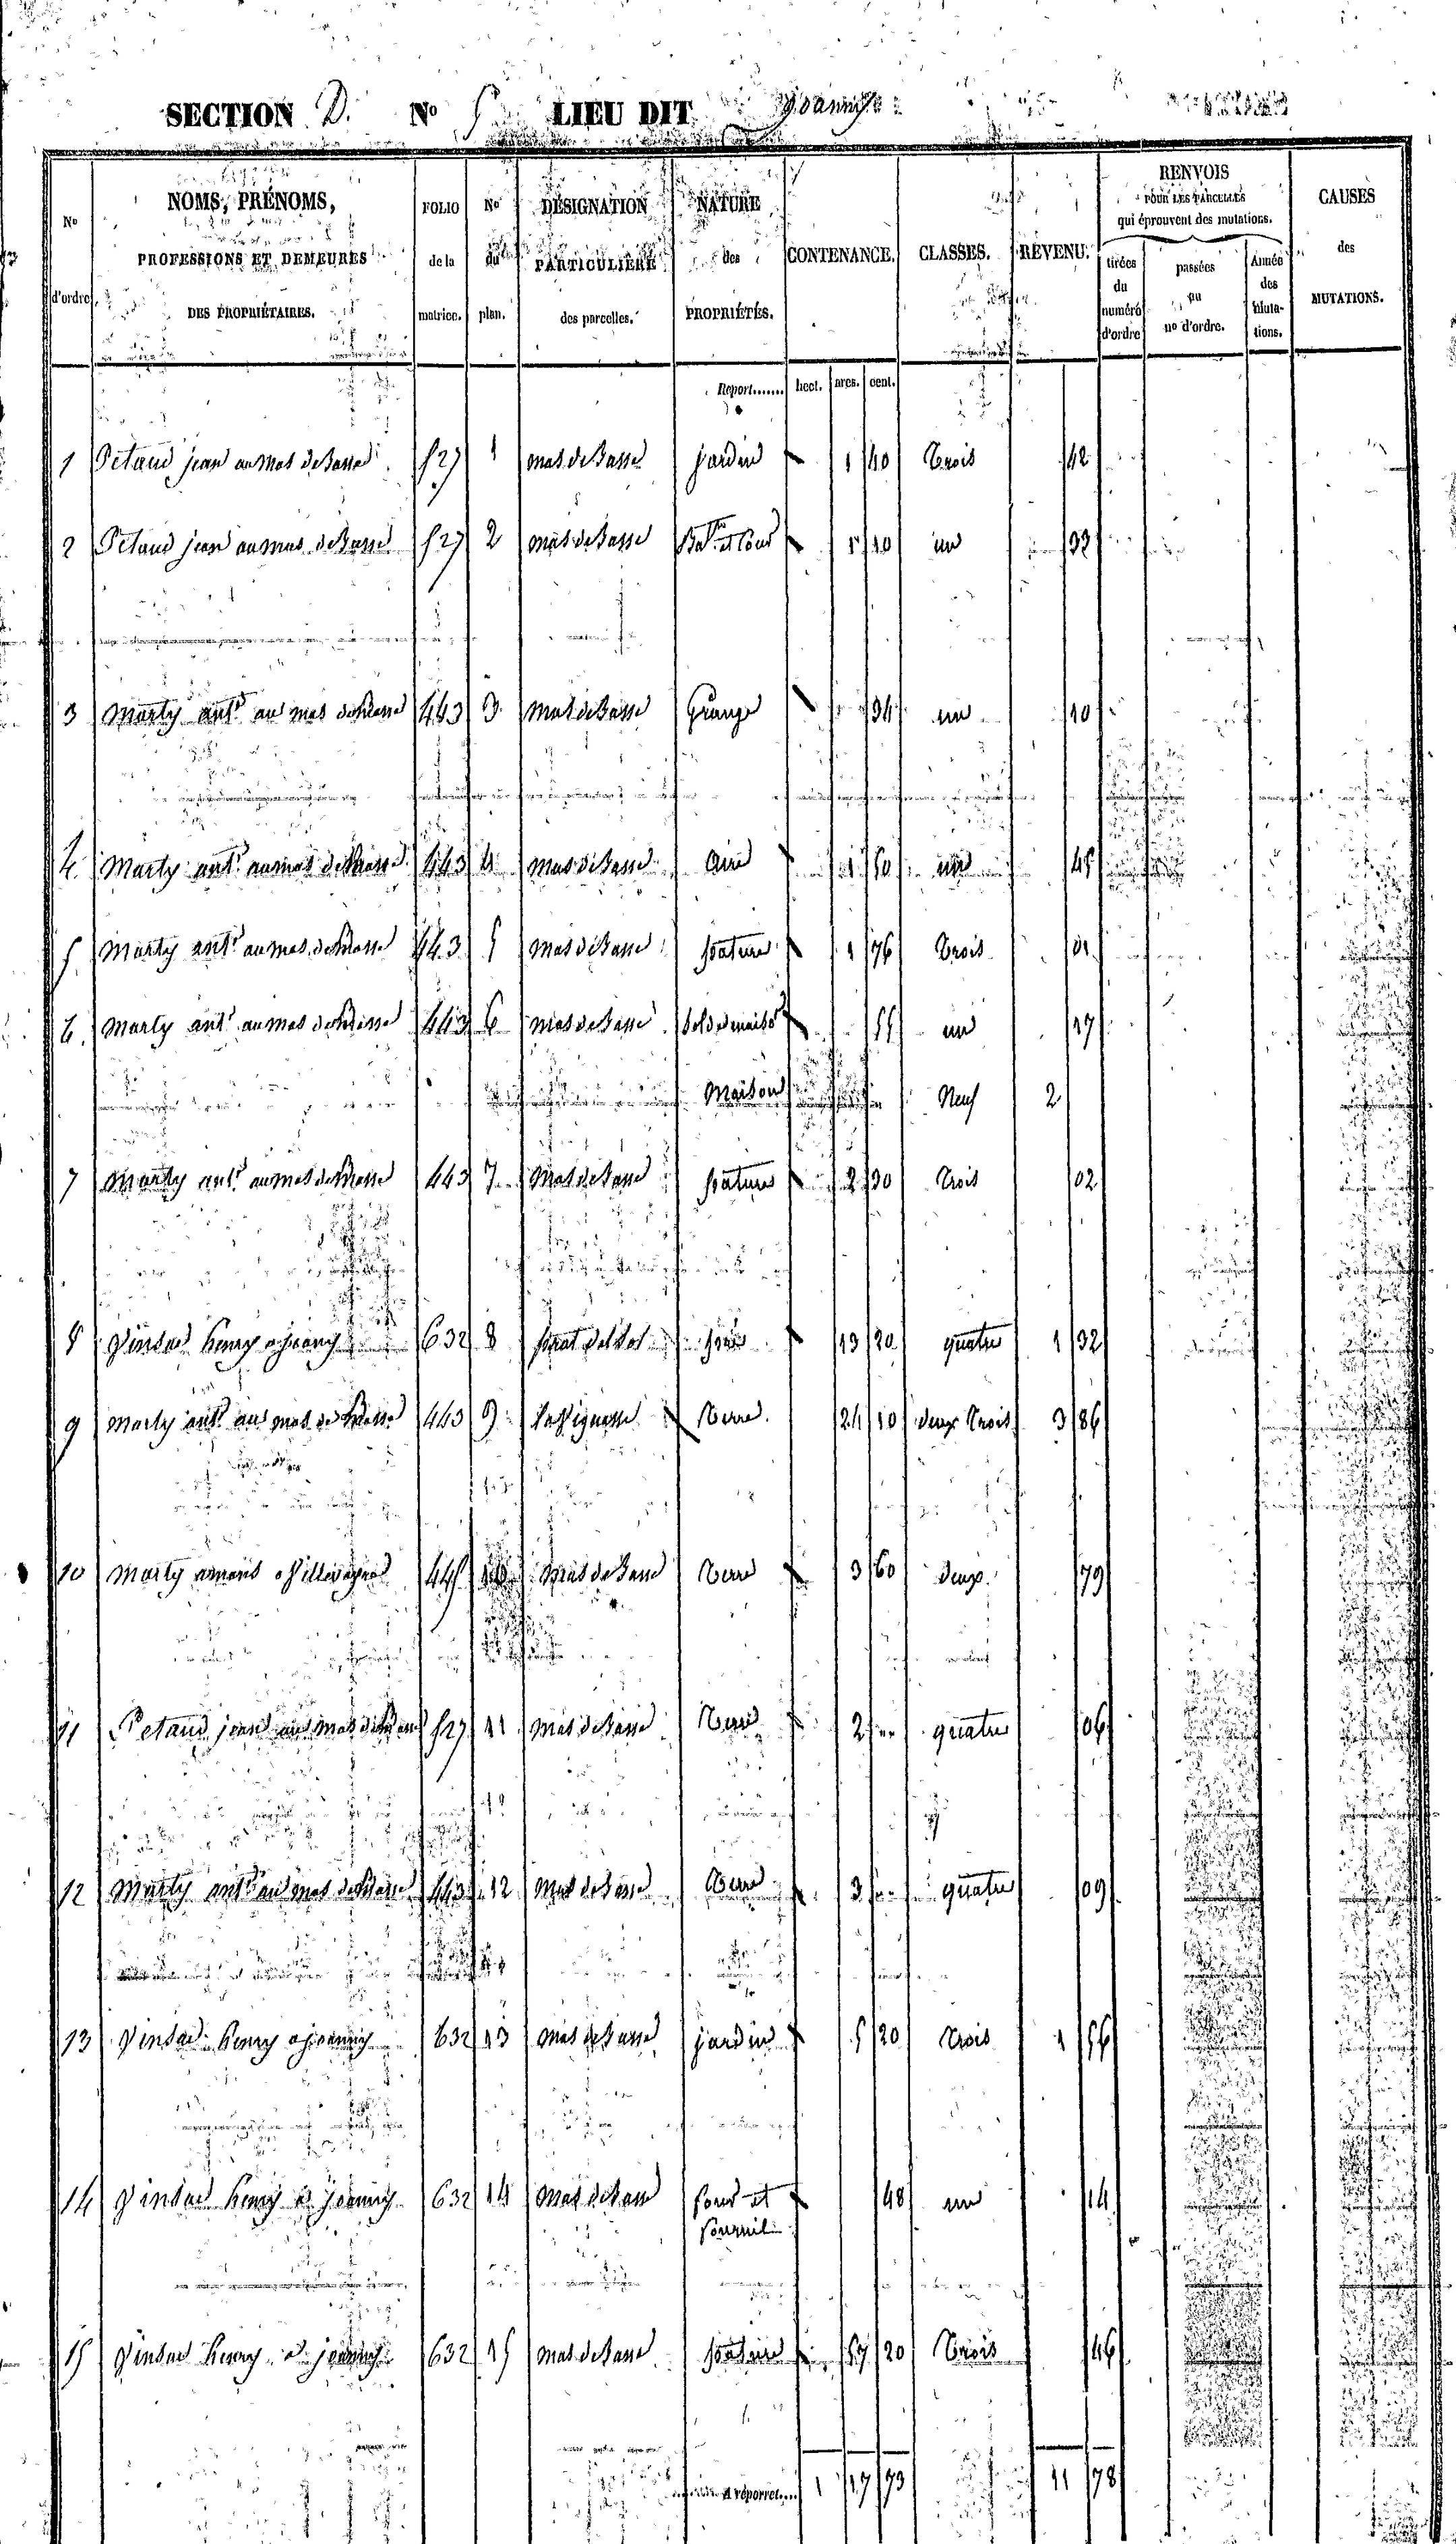 SECTION D. No 5 LIEU DIT
No d'ordre
NOMS, PRÉNOMS, PROFESSIONS ET DEMEURES DES PROPRIÉTAIRES.
FOLIO de la matrice.
No du plan.
DÉSIGNATION PARTICULIÈRE des parcelles.
NATURE des PROPRIÉTÉS.
CONTENANCE.
CLASSES.
REVENU.
RENVOIS POUR LES PARCELLES qui éprouvent des mutations.
tirées du numéro d'ordre
passées au no d'ordre.
Année des Muta-tions.
CAUSES des MUTATIONS.
Report....... hect. ares. cent.
1 Petaud jean au mas de Basse 527 1 mas de Basse jardin 1 40 Trois 42
2 Petaud jean au mas de Basse 527 2 mas de Basse Bat. et Cour 1 10 un 33
3 Marty ant. au mas de Basse 443 3 mas de Basse Grange 34 un 10
4 Marty ant. au mas de Basse 443 4 mas de Basse aire 1 50 un 45
5 Marty ant. au mas de Basse 443 5 mas de Basse pature 1 76 Trois 01
6 Marty ant. au mas de Basse 443 6 mas de Basse Sol de maison 55 un 17
Maison Neuf 2
7 Marty ant. au mas de Basse 443 7 Mas de Basse pature 2 30 Trois 02
8 henry a joany 632 8 prat del pré 13 20 quatre 1 32
9 Marty ant. au mas de Basse 443 9 Terre 24 10 deux Trois 3 86
10 Marty 445 10 Mas de Basse Terre 3 60 deux 79
11 Petaud jean au mas de Basse 527 11 mas de Basse Terre 2 " quatre 06
12 Marty ant. au mas de Basse 443 12 Mas de Basse Terre 3 " quatre 09
13 henry a joany 632 13 mas de Basse jardin 5 20 Trois 1 56
14 henry a joany 632 14 Mas de Basse four et 48 un 14
fournil
15 henry a joany 632 15 mas de Basse pature 57 20 Trois 46
A reporter.... 1 17 73 11 78